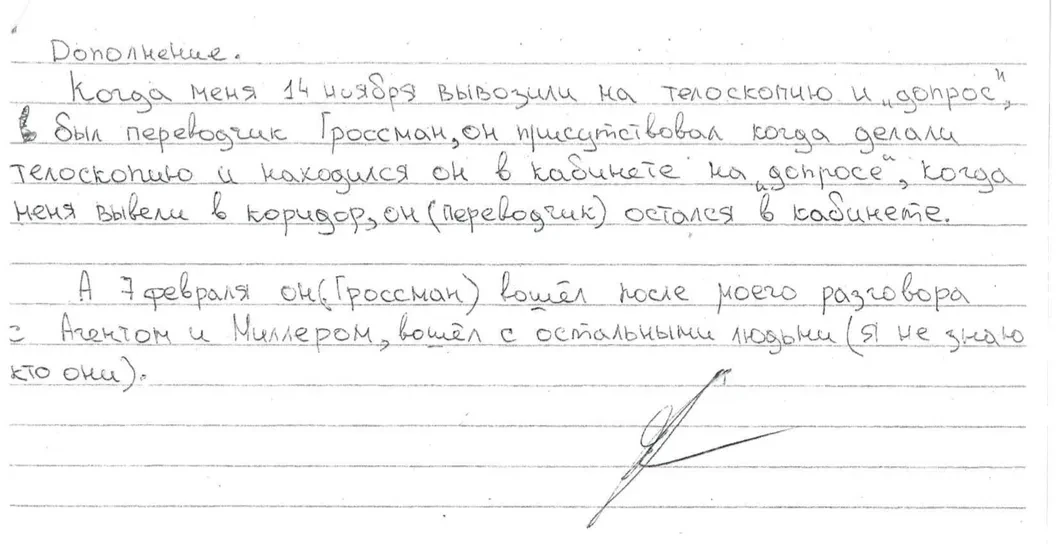 Дополнение.
Когда меня 14 ноября вывозили на телоскопию и „допрос“,
был переводчик Гроссман, он присутствовал когда делали
телоскопию и находился он в кабинете на „допросе“, когда
меня вывели в коридор, он (переводчик) остался в кабинете.
А 7 февраля он (Гроссман) вошёл после моего разговора
с Агентом и Миллером, вошёл с остальными людьми (я не знаю
кто они).